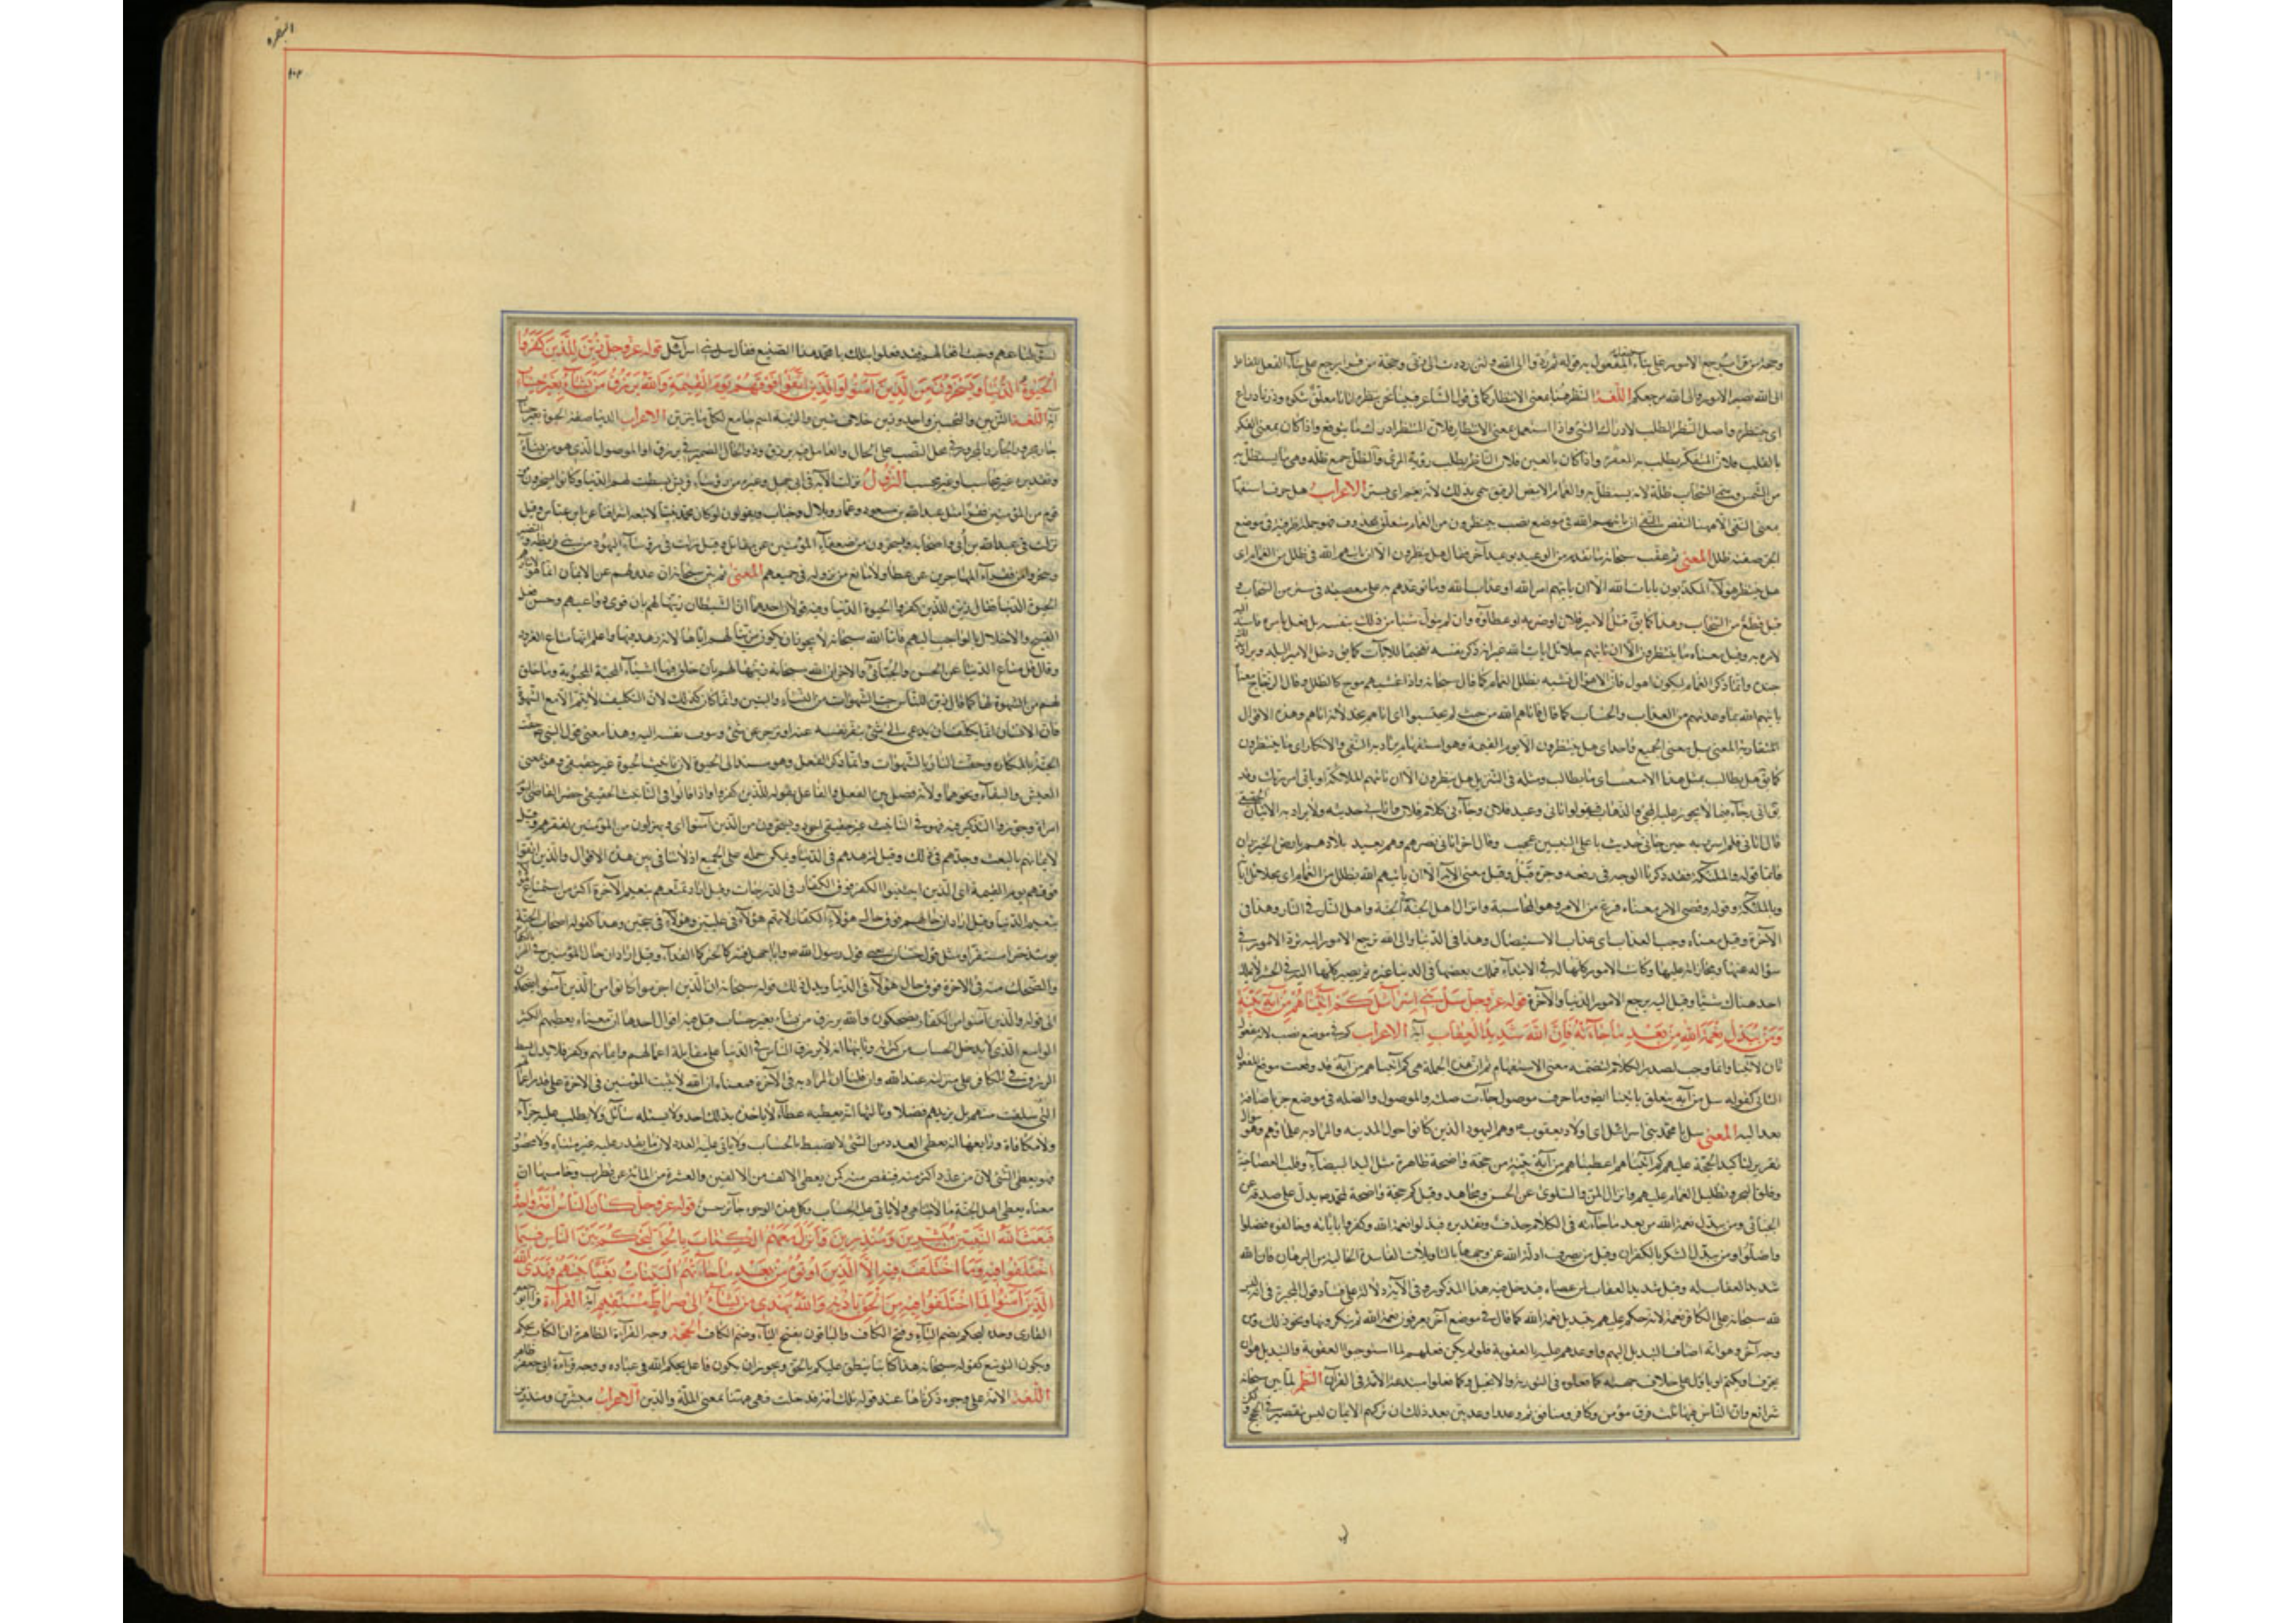 وحجة من قرأ يرجع الامور على بناء المفعول به قوله ثم ردوا الى الله ولئن رددت الى ربي وحجة من قرأ يرجع على بناء الفعل للفاعل
الى الله تصير الامور والى الله مرجعكم اللغة النظر هنا بمعنى الانتظار كما في قول الشاعر فبينا نحن ننظره اتانا معلق شكوة وزناد راع
اى ننتظره واصل النظر الطلب لادراك الشئ واذا استعمل بمعنى الانتظار فلان المنتظر ادراك ما يتوقع واذا كان بمعنى الفكر
بالقلب فلان المتفكر يطلب به المعرفة واذا كان بالعين فلان الناظر يطلب رؤية المرئى والظلل جمع ظلة وهى ما يستظل به
من الشمس وسمى السحاب ظلة لانه يستظل به والغمام الابيض الرقيق سمى بذلك لانه يغم اى يستر الاعراب هل حرف استفهام
معنى النفى الا ههنا لنقض النفى ان ياتيهم الله فى موضع نصب ينظرون من الغمام يتعلق بمحذوف فهو جملة ظرفية فى موضع
الجر صفة ظلل المعنى ثم عقب سبحانه ما تقدم من الوعيد بوعيد آخر فقال هل ينظرون الا ان ياتيهم الله فى ظلل من الغمام اى
هل ينتظر هؤلاء المكذبون بايات الله الا ان ياتيهم امر الله او عذاب الله وما توعدهم به على معصيته فى ستر من السحاب و
قيل قطع من السحاب وهذا كما يق قتل الامير فلانا وضربه او عطاه وان لم يتول شيئا من ذلك بنفسه بل فعل بامره فاسند اليه
لامره به وقيل معناه ما ينتظرون الا ان تاتيهم جلائل ايات الله غير انه ذكر نفسه تفخيما للايات كما يق دخل الامير البلد ويراد بذلك
جنده وانما ذكر الغمام ليكون اهول فان الاهوال تشبه بظلل الغمام كما قال سبحانه واذا غشيهم موج كالظلل وقال الزجاج معناه
ياتيهم الله بما وعدهم من العذاب والحساب كما قال فاتاهم الله من حيث لم يحتسبوا اى اتاهم بخذلانه اياهم وهذه الاقوال
متقاربة المعنى بل معنى الجميع واحد اى هل ينتظرون الا يوم القيمة وهو استفهام يراد به النفى والانكار اى ما ينتظرون
كما يق هل يطالب بمثل هذا الا متعسف اى ما يطالب ومثله فى التنزيل هل ينظرون الا ان تاتيهم الملائكة او ياتى امر ربك وقد
يق اتى وجاء فيما لا يجوز عليه المجئ والذهاب فيقولوا اتانى وعيد فلان وجاءنى كلام فلان واتانى حديثه ولا يراد به الاتيان الحقيقى
قال اتانى فلم اسر به حين جاءنى حديث باعلى القنتين عجيب وقال اخر اتانى نصرهم وهم بعيد بلادهم بارض الخيزران
فاما قوله والملئكة فقد ذكرنا الوجه فى رفعه وجره قبل وقيل معنى الآية الا ان ياتيهم الله بظلل من الغمام اى بجلائل اياته
وبالملئكة وقوله وقضى الامر معناه فرغ من الامر وهو المحاسبة وانزال اهل الجنة فى الجنة واهل النار فى النار وهذا فى
الآخرة وقيل معناه وجب العذاب اى عذاب الاستيصال وهذا فى الدنيا والى الله ترجع الامور اليه ترد الامور فى
سؤاله عنها ومجازاته عليها وكانت الامور كلها له فى الابتداء فملك بعضها فى الدنيا غيره ثم يصير كلها اليه فى الحشر لا يملك
احد هناك شيئا وقيل اليه يرجع الامور الدنيا والآخرة قوله عز وجل سل بنى اسرائيل كم اتيناهم من اية بينة
ومن يبدل نعمة الله من بعد ما جاءته فان الله شديد العقاب آية الاعراب كم فى موضع نصب لانه مفعول
ثان لاتينا وانما وجب لصدر الكلام لتضمنه معنى الاستفهام ثم ان هذه الجملة هى كم اتيناهم من آية قد وقعت موقع المفعول
الثانى كقوله سل من آية يتعلق باتينا ايضا وما حرف موصول جاءت صلته والموصول والصلة فى موضع جر باضافة
بعد اليه المعنى سل يا محمد بنى اسرائيل اى اولاد يعقوب وهم اليهود الذين كانوا حول المدينة والمراد به علماؤهم وهو سؤال
تقرير لتاكيد الحجة عليهم كم اتيناهم اعطيناهم من آية بينة من حجة واضحة ظاهرة مثل اليد البيضاء وقلب العصا حية
وفلق البحر وتظليل الغمام عليهم وانزال المن والسلوى عن الحسن ومجاهد وقيل كم حجة واضحة لمحمد ص يدل على صدقه عن
الجبائى ومن يبدل نعمة الله من بعد ما جاءته فى الكلام حذف وتقديره فبدلوا نعمة الله وكفروا باياته وخالفوه فضلوا
واضلوا ومن يبدل الشكر بالكفران وقيل من يصرف ادلة الله عن وجهها بالتاويلات الفاسدة الخالية من البرهان فان الله
شديد العقاب له وقيل شديد العقاب لمن عصاه فيدخل فيه هذا المذكور وفى الآية دلالة على فساد قول المجبرة فى انه ليس
لله سبحانه على الكافر نعمة لانه حكم عليهم بتبديل نعمة الله كما قال فى موضع آخر يعرفون نعمة الله ثم ينكرونها ونحو ذلك ومن
وجه آخر وهو انه اضاف التبديل اليهم واوعدهم عليه بالعقوبة فلو لم يكن فعلهم لما استوجبوا العقوبة والتبديل هو ان
يحرف او يكتم او يتاول على خلاف جهته كما فعلوه فى التورية والانجيل وكما فعله مبتدعة الامة فى القرآن النظم لما بين سبحانه
شرائع وان الناس فيها ثلث فرق مؤمن وكافر ومنافق ثم وعد واوعد بين بعد ذلك ان تركهم الايمان ليس لتقصير فى الحجج ولكن
البقره
لسوء طباعهم وخبث افعالهم فقد فعلوا قبلك يا محمد هذا الصنيع فقال سل بنى اسرائيل قوله عز وجل زين للذين كفروا
الحيوة الدنيا ويسخرون من الذين آمنوا والذين اتقوا فوقهم يوم القيمة والله يرزق من يشاء بغير حساب
آية اللغة التزيين والتحسين واحد والزين خلاف الشين والزينة اسم جامع لكل ما يتزين الاعراب الدنيا صفة الحيوة بغير حساب
جار ومجرور والجار والمجرور فى محل النصب على الحال والعامل فيه يرزق وذو الحال الضمير فى يرزق او الموصول الذى هو من يشاء
وتقديره غير محاسب او غير محسب النزول نزلت الآية فى ابى جهل وغيره من رؤساء قريش بسطت لهم الدنيا وكانوا يسخرون من
قوم من المؤمنين فقراء مثل عبد الله بن مسعود وعمار وبلال وخباب ويقولون لو كان محمد نبيا لاتبعه اشرافنا عن ابن عباس وقيل
نزلت فى عبد الله بن ابى واصحابه ويسخرون من ضعفاء المؤمنين عن مقاتل وقيل نزلت فى رؤساء اليهود من بنى قريظة والنضير
وسخروا من فقراء المهاجرين عن عطا ولا مانع من نزوله فى جميعهم المعنى ثم بين سبحانه ان عدولهم عن الايمان انما هو لايثارهم
الحيوة الدنيا فقال زين للذين كفروا الحيوة الدنيا وفيه قولان احدهما ان الشيطان زينها لهم بان قوى دواعيهم وحسن فعل
القبيح والاخلال بالواجب اليهم فاما الله سبحانه لا يجوز ان يكون زينها لهم اياها لانه زهد فيها واعلم انها متاع الغرور
وقال قل متاع الدنيا عن الحسن والجبائى والاخر ان الله سبحانه زينها لهم بان خلق فيها الاشياء المحبة المحبوبة وما خلق
لهم من الشهوة لها كما قال زين للناس حب الشهوات من النساء والبنين وانما كان كذلك لان التكليف لا يتم الا مع الشهوة
فان الانسان انما يكلف ان يدعى الى شئ ينفر نفسه عنه او يزجر عن شئ وسوف نفسه اليه وهذا معنى قول النبى حفت
الجنة بالمكاره وحفت النار بالشهوات وانما ذكر الفعل وهو مسند الى الحيوة لان تانيث الحيوة غير حقيقى وهو بمعنى
العيش والبقاء ونحوهما ولانه فصل بين الفعل والفاعل بقوله للذين كفروا واذا قالوا فى التانيث الحقيقى حضر القاضى اليوم
امراة وجوزوا التذكير فيه فهو فى التانيث غير حقيقى اجود ويسخرون من الذين آمنوا اى ويهزؤن من المؤمنين لفقرهم وقيل
لايمانهم بالبعث وجدهم فى ذلك وقيل لزهدهم فى الدنيا ويمكن حمله على الجميع اذ لا تنافى بين هذه الاقوال والذين اتقوا
فوقهم يوم القيمة اى الذين اجتنبوا الكفر فوق الكفار فى الدرجات وقيل اراد تمتعهم بنعيم الآخرة اكثر من استمتاع هؤلاء
بنعيم الدنيا وقيل اراد ان حالهم فوق حال هؤلاء الكفار لانهم هؤلاء فى عليين وهؤلاء فى سجين وهذا كقوله اصحاب الجنة
يومئذ خير مستقرا ومثل قول حسان يعنى قول رسول الله ص وابا جهل فشركما لخيركما الفداء وقيل اراد ان حال المؤمنين فى الهزء
والضحك منه فى الاخرة فوق حال هؤلاء فى الدنيا ويدل ذلك قوله سبحانه ان الذين اجرموا كانوا من الذين آمنوا يضحكون
الى قوله والذين آمنوا من الكفار يضحكون والله يرزق من يشاء بغير حساب قيل فيه اقوال احدها ان معناه يعطيهم الكثير
الواسع الذى لا يدخل الحساب من كثرته وثانيها انه لا يرزق الناس فى الدنيا على مقابلة اعمالهم وايمانهم وكفرهم فلا يدل بسط
الرزق فى الكافر على منزلته عند الله وان قلنا ان المراد به فى الآخرة فمعناه ان الله لا يثيب المؤمنين فى الاخرة على قدر اعمالهم
التى سلفت منهم بل يزيدهم فضلا وثالثها انه يعطيه عطاء لا ياخذه بذلك احد ولا يسئله سائل ولا يطلب عليه جزاء
ولا مكافاة ورابعها انه يعطى العدد من الشئ لا يضبط بالحساب ولا ياتى عليه العدد لان ما يقدر عليه غير متناه ولا محصور
فهو يعطى الشئ لا من عدد اكثر منه فينقص منه كمن يعطى الالف من الالفين والعشرة من المائة عن قطرب وخامسها ان
معناه يعطى اهل الجنة ما لا يتناهى ولا ياتى عليه الحساب وكل هذه الوجوه جائز حسن قوله عز وجل كان الناس امة واحدة
فبعث الله النبيين مبشرين ومنذرين وانزل معهم الكتاب بالحق ليحكم بين الناس فيما
اختلفوا فيه وما اختلف فيه الا الذين اوتوه من بعد ما جاءتهم البينات بغيا بينهم فهدى الله
الذين آمنوا لما اختلفوا فيه من الحق باذنه والله يهدى من يشاء الى صراط مستقيم آية القراءة قرا ابو جعفر
القارى وحده ليحكم بضم الياء وفتح الكاف والباقون بفتح الياء وضم الكاف الحجة وجه القراءة الظاهرة ان الكتاب يحكم
ويكون التوسع كقوله سبحانه هذا كتابنا ينطق عليكم بالحق ويجوز ان يكون فاعل يحكم الله فى عباده ووجه قراءة ابى جعفر ظاهر
اللغة الامة على وجوه ذكرناها عند قوله تلك امة قد خلت فهى ههنا بمعنى الملة والدين الاعراب مبشرين ومنذرين